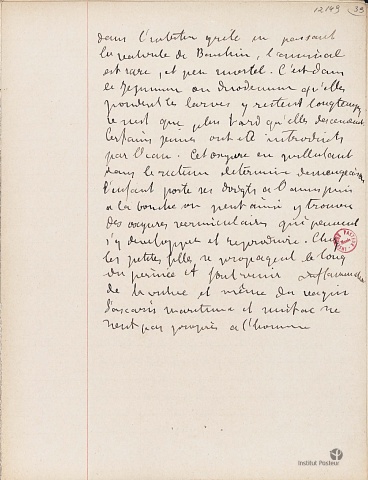 12149 39
dans l'intestin grêle en passant
la valvule de Bauhin, l'animal
est rare, et peu mortel. C'est dans
le jejunum ou duodenum qu'elles
pondent les larves y restent longtemps
ce n'est que plus tard qu'elles descendent
Certains jeunes ont été introduits
par l'eau. Cet oxyure en pullulant
dans le rectum determine demangeaisons
l'enfant porte ses doigts a l'anus puis
a la bouche on peut ainsi y trouver
des oxyures vermiculaires qui peuvent
s'y developper et reproduire. Chez
les petites filles se propagent le long
du perinee et font venir inflammation
de la vulve et même du vagin
l'ascaris maritima et mistax ne
sont pas propres a l'homme
Institut Pasteur